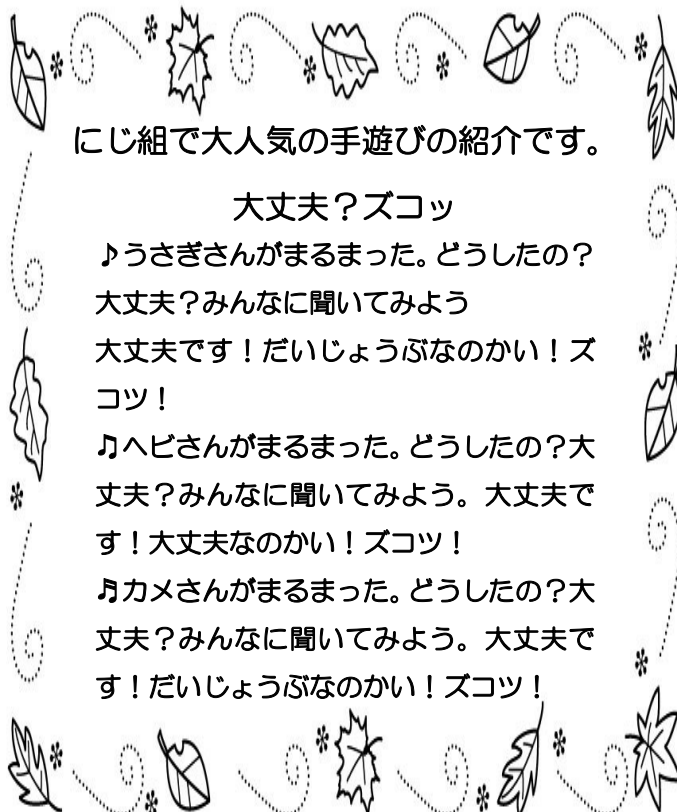 にじ組で大人気の手遊びの紹介です。
大丈夫？ズコッ
♪うさぎさんがまるまった。どうしたの？
大丈夫？みんなに聞いてみよう
大丈夫です！だいじょうぶなのかい！ズ
コツ！
♫ヘビさんがまるまった。どうしたの？大
丈夫？みんなに聞いてみよう。大丈夫で
す！大丈夫なのかい！ズコツ！
♬カメさんがまるまった。どうしたの？大
丈夫？みんなに聞いてみよう。大丈夫で
す！だいじょうぶなのかい！ズコツ！